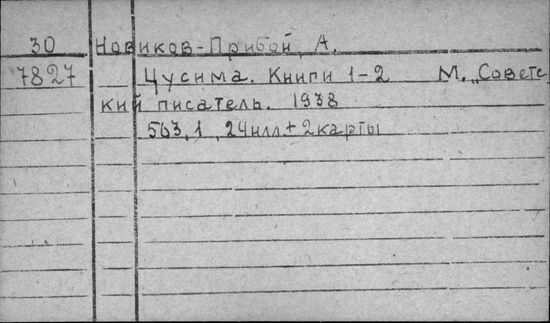 30 Новиков-Прибой, А.
7827 Цусима. Книги 1-2 М. „Советс
кий писатель. 1938
563,1, 24илл+2карты